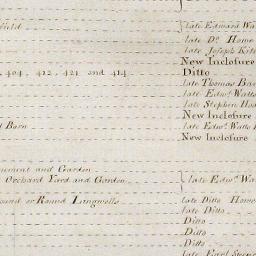 late Edward Wa
late Do. Home
late Joseph Kit
New Inclosure
, 404, 412, 421 and 414 Ditto
late Thomas Ba
late Edwd. Watts
late Stephen Ho
New Inclosure
Barn late Edwd. Watts
New Inclosure
and Garden
Orchard Yard and Garden late Edwd. Wa
or Round Lingwells late Ditto Home
late Ditto
Ditto
Ditto
Ditto
late Earl